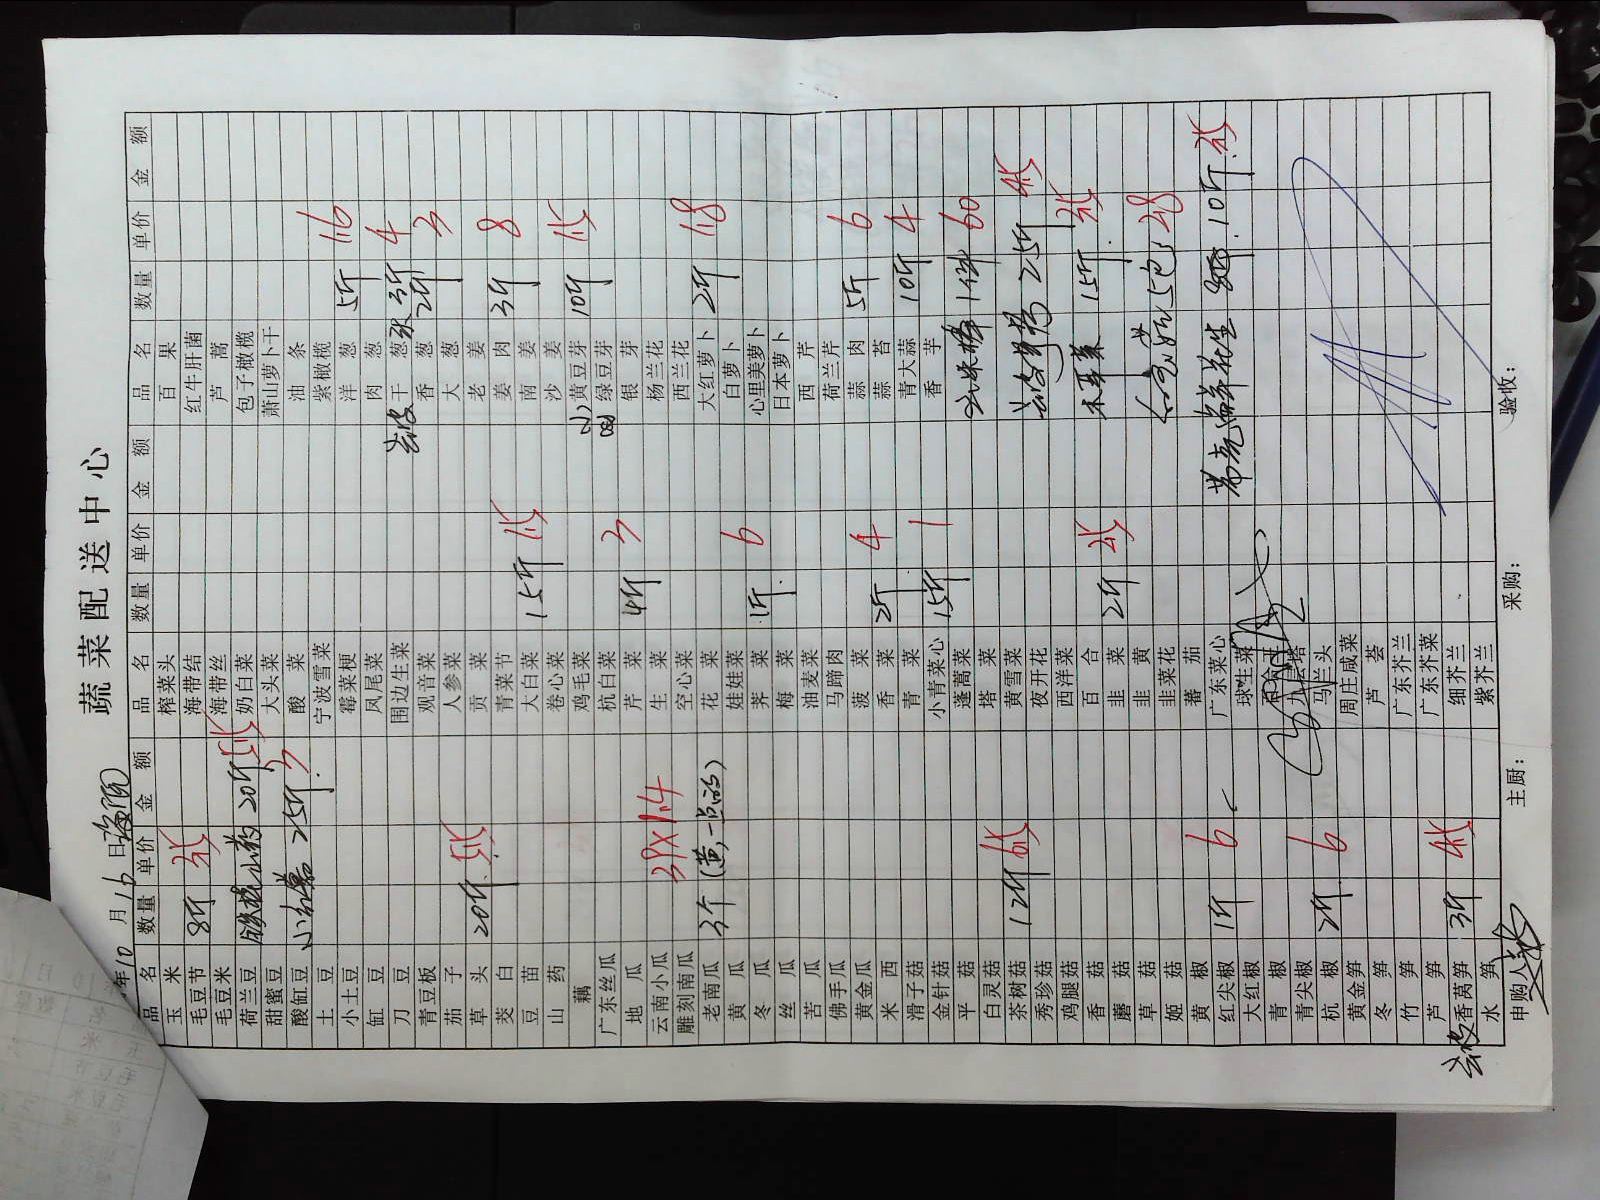 蔬菜配送中心
年10月16日海阳
品名 数量 单价 金额 品名 数量 单价 金额 品名 数量 单价 金额
玉米 榨菜头 百果
毛豆节 8斤 3.5 海带结 红牛肝菌
毛豆米 海带丝 芦蒿
荷兰豆 铁棍山药 20斤 5.5 奶白菜 包子橄榄
甜蜜豆 大头菜 萧山萝卜干
酸缸豆 小红薯 25斤 3 酸菜 油条
土豆 宁波雪菜 紫橄榄
小土豆 霉菜梗 洋葱 5斤 1.6
缸豆 凤尾菜 肉葱
刀豆 围边生菜 去皮干葱 3斤 4
青豆板 观音菜 香葱 2斤 3
茄子 人参菜 大葱
草头 20斤 5.5 贡菜 老姜
茭白 青菜节 姜肉 3斤 8
豆苗 大白菜 15斤 1.5 南姜
山药 卷心菜 沙姜
藕 鸡毛菜 小黄豆芽 10斤 1.5
广东丝瓜 杭白菜 绿豆芽
地瓜 芹菜 4斤 3 银芽
云南小瓜 生菜 杨兰花
雕刻南瓜 39×1.4 空心菜 西兰花
老南瓜 3个(黄一点的) 花菜 大红萝卜 2斤 1.8
黄瓜 娃娃菜 白萝卜
冬瓜 荠菜 1斤 6 心里美萝卜
丝瓜 梅菜 日本萝卜
苦瓜 油麦菜 西芹
佛手瓜 马蹄肉 荷兰芹
黄金瓜 菠菜 蒜肉 5斤 6
西米 香菜 2斤 4 蒜苔
滑子菇 青菜 青大蒜 10斤 4
金针菇 小青菜心 15斤 1 香芋
平菇 蓬蒿菜 玉米棒 1件 60
白灵菇 塔菜
茶树菇 12斤 6.5 黄雪菜 去皮 25斤 4.5
秀珍菇 夜开花
鸡腿菇 西洋菜
香菇 百合 木耳菜 15斤 3.5
蘑菇 韭菜 2斤 2.5
草菇 韭黄
姬菇 韭菜花 5包 28
黄椒 蕃茄
红尖椒 1斤 6 广东菜心 带壳鲜花生 10斤
大红椒 球生菜
青椒
青尖椒 九层塔
杭椒 2斤 6 马兰头
黄金笋 周庄咸菜
冬笋 芦荟
竹笋 广东芥兰
芦笋 广东芥菜
去皮香莴笋 3斤 4.5 细芥兰
水笋 紫芥兰
申购人: 主厨: 采购: 验收: